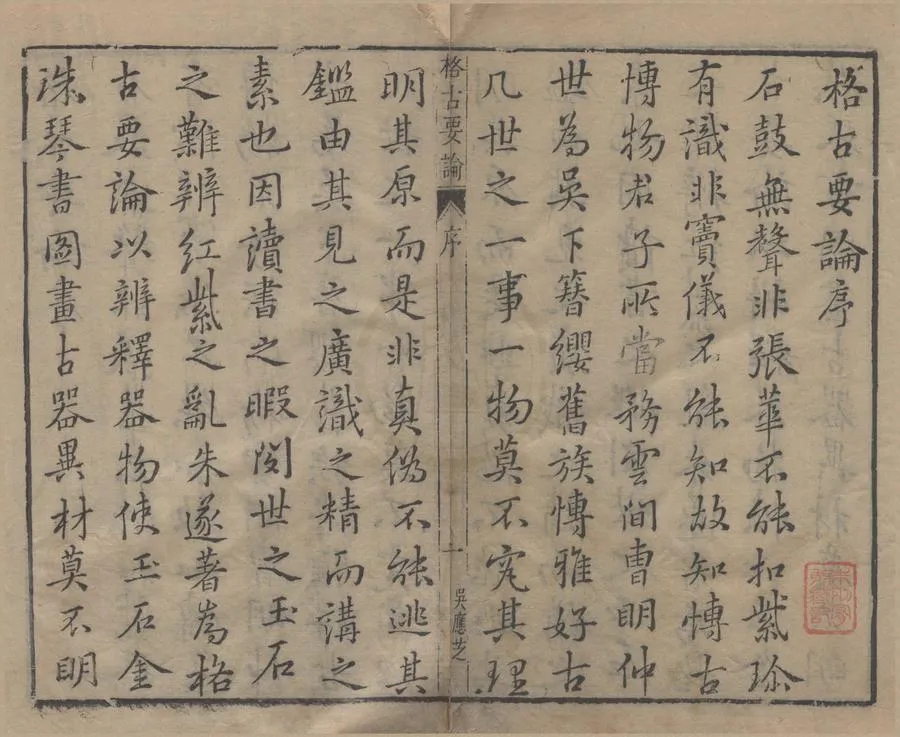 格古要論序
石鼓無聲非張華不能扣紫珍
有識非竇儀不能知故知博古
博物君子所當務雲間曹明仲
世為吳下簪纓舊族博雅好古
凡世之一事一物莫不究其理
格古要論 序 一 吳應芝
明其原而是非真偽不能逃其
鑑由其見之廣識之精而講之
素也因讀書之暇閱世之玉石
之難辨紅紫之亂朱遂著為格
古要論以辨釋器物使玉石金
珠琴書圖畫古器異材莫不明